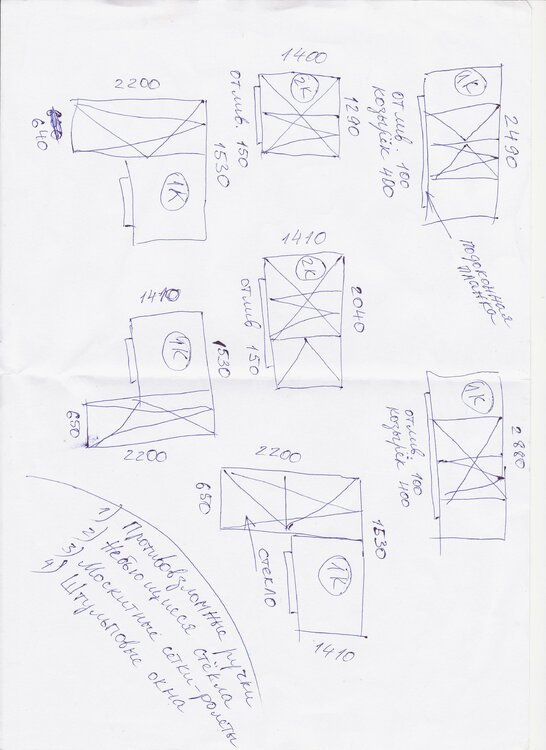 2200
640
1530
1К
1400
2К
1290
отлив. 150
1К
2490
отлив. 100
козырёк 400
подоконная
планка
1410
2К
2040
отлив 150
1410
1К
1530
650
2200
1К
2880
отлив. 100
козырёк 400
2200
650
1530
стекло
1К
1410
1) Противовзломные ручки
2) Небьющиеся стёкла
3) Москитные сетки-ролеты
4) Штульповые окна